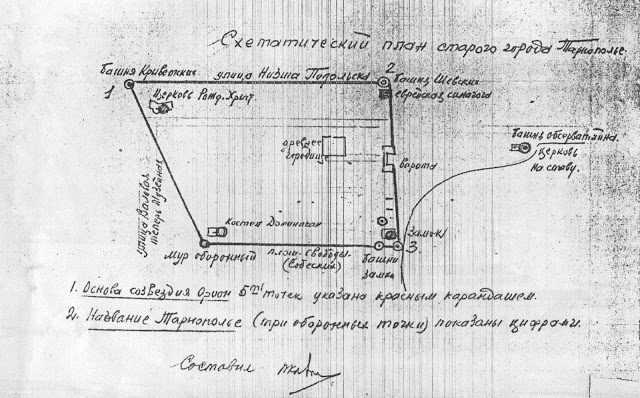 Схематический план старого города Тарнополье.
2
башня Кривенких
улица Низша Подольска
башня Шевских
еврейская синагога
1
Церковь Рожд. Христ.
древнее
городище
ворота
башня обсерватайна.
церковь
на ставу.
улица Валовая
теперь Музейная
костел Доминикан
замок
3.
Мур оборонный
площ. свободы
(Собеских)
башни
замка
1. Основа созвездия Орион 5ти точек указана красным карандашем.
2. Название Тарнополье (три оборонных точки) показаны цифрами.
Составил